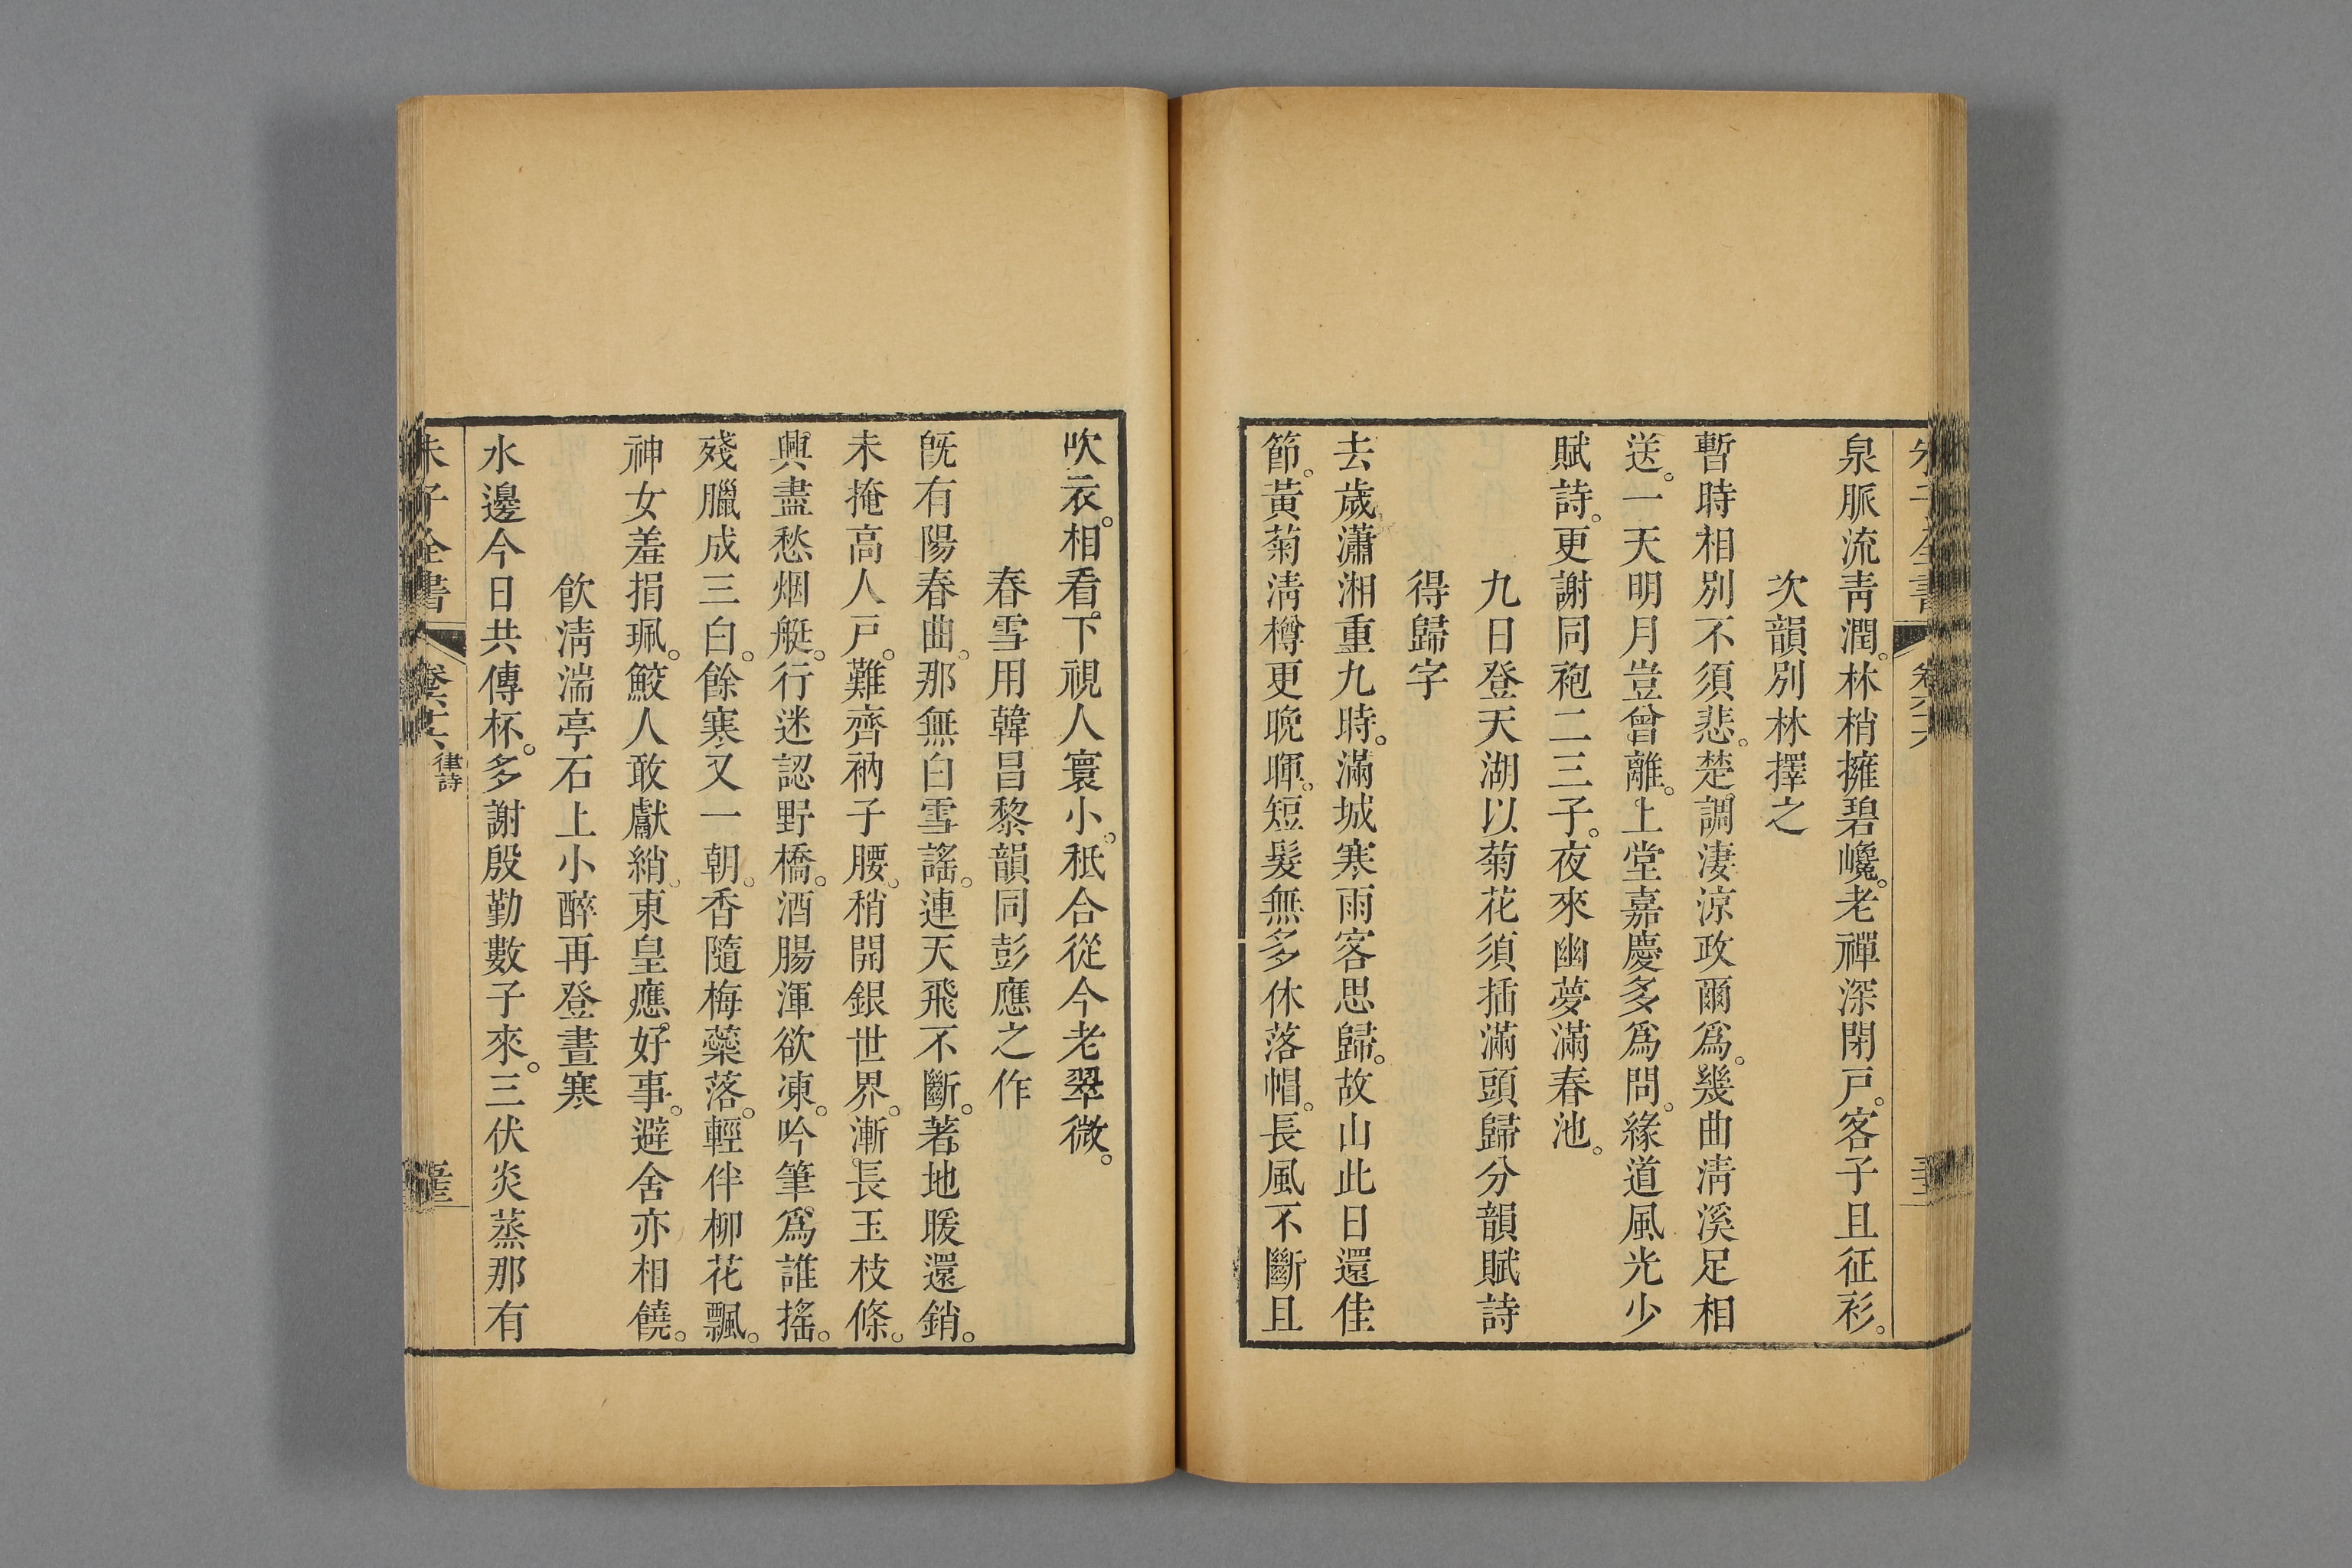 泉脈流靑潤。林梢擁碧巉。老禪深閉戸。客子且征衫。
次韻別林擇之
暫時相別不須悲。楚調淒涼政爾爲。幾曲淸溪足相
送。一天明月豈曾離。上堂嘉慶多爲問。緣道風光少
賦詩。更謝同袍二三子。夜來幽夢滿春池。
九日登天湖以菊花須插滿頭歸分韻賦詩
得歸字
去歲瀟湘重九時。滿城寒雨客思歸。故山此日還佳
節。黃菊淸樽更晚暉。短髮無多休落帽。長風不斷且
吹衣。相看。下視人寰小。秖合從今老翠微。
春雪用韓昌黎韻同彭應之作
旣有陽春曲。那無白雪謠。連天飛不斷。著地暖還銷。
未掩高人戸。難齊衲子腰。稍開銀世界。漸長玉枝條。
興盡愁烟艇。行迷認野橋。酒腸渾欲凍。吟筆爲誰搖。
殘臘成三白。餘寒又一朝。香隨梅蘂落。輕伴柳花飄。
神女羞捐珮。鮫人敢獻綃。東皇應好事。避舍亦相饒。
飮淸湍亭石上小醉再登晝寒
水邊今日共傳杯。多謝殷勤數子來。三伏炎蒸那有
朱子全書 律詩